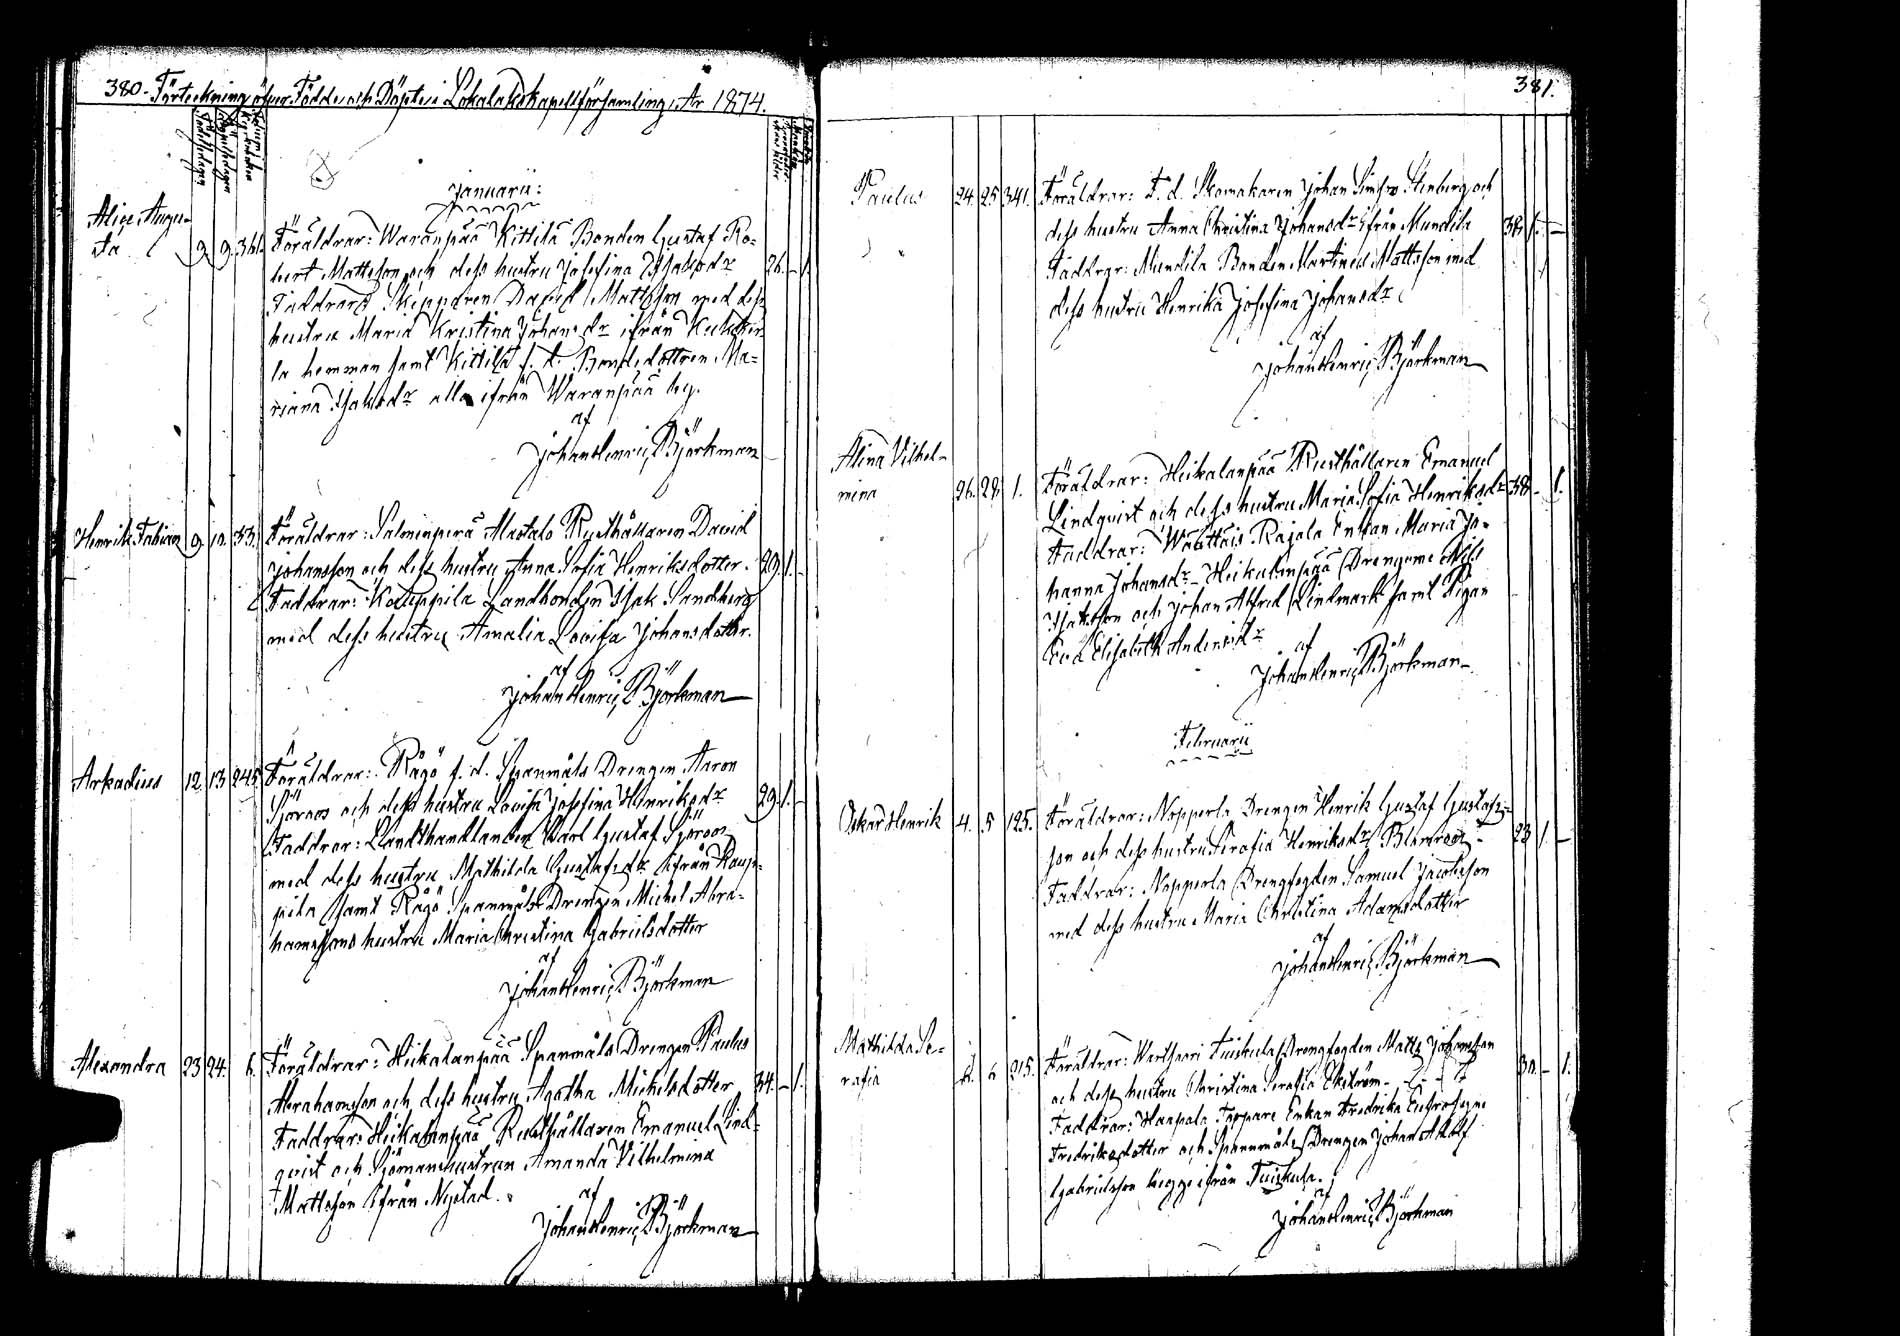 380. Förteckning öfver Födde och Döpte i Lokalaks kapellförsamling, År 1874.
Januarii:
Alice Augu-
sta 9. 9. 361. Föräldrar: Waranpää Kittilä Bonden Gustaf Ro-
bert Mattsson och dess hustru Josefina Isaksdr 26. - 1.
Faddrar: Skepparen David Mattsson med dess
hustru Maria Kristina Johansdr ifrån
la hemman samt Kittilä f. d. Bondedottren Ma-
riana Isaksdr alla ifrån Waranpää by.
af
Johan Henric Björkman
Henrik Fabian 9. 10. 33. Föräldrar: Salmenperä Alastalo Rusthållaren David
Johansson och dess hustru Anna Sofia Henriksdotter. 29. 1. -
Faddrar: Kauppila Landbonden Isak Sandberg
med dess hustru Amalia Lovisa Johansdotter.
af
Johan Henric Björkman
Arkadius 12. 13 245. Föräldrar: Rågö f. d. Spanmåls Drengen Aaron
Sjöroos och dess hustru Lovisa Josefina Henriksdr 29. 1. -
Faddrar: Landthandlanden Karl Gustaf Sjöroos
med dess hustru Mathilda Gustafsdr ifrån Kaup-
pila samt Rågö Spanmåls Drengen Michel Abra-
hamssons hustru Maria Christina Gabrielsdotter
af
Johan Henric Björkman
Alexandra 23 24. 6. Föräldrar: Heikalanpää Spanmåls Drengen Paulus
Abrahamsson och dess hustru Agatha Mickelsdotter 34. - 1.
Faddrar: Heikalanpää Rusthållaren Emanuel Lind-
qvist och Sjömanshustrun Amanda Vilhelmina
Mattsson ifrån Nystad.
af
Johan Henric Björkman
381.
Paulus 24. 25 341. Föräldrar: F. d. Skomakaren Johan Stenberg och
dess hustru Anna Christina Johansdr ifrån Mundila 38. 1. -
Faddrar: Mundila Bonden Martinus Mattsson med
dess hustru Henrika Josefina Johansdr
af
Johan Henric Björkman
Alina Vilhel-
mina 26. 28. 1. Föräldrar: Heikalanpää Rusthållaren Emanuel
Lindqvist och dess hustru Maria Sofia Henriksdr 38. - 1.
Faddrar: Rajala Enkan Maria Jo-
hanna Johansdr - Heikalanpää Drengarne Nils
Isaksson och Johan Alfred Lindmark samt Pigan
Eva Elisabeth Andersdr
af
Johan Henric Björkman
Februarii
Oskar Henrik 4. 5 125. Föräldrar: Nopperla Drengen Henrik Gustaf Gustafs-
son och dess hustru Serafia Henriksdr Blomroos 23 1. -
Faddrar: Nopperla Drengfogden Samuel Jacobsson
med dess hustru Maria Christina Adamsdotter
af
Johan Henric Björkman
Mathilda Se-
rafia 6 215. Föräldrar: Wartsaari Tuiskula Drengfogden Matts Johansson
och dess hustru Christina Serafia Ekström 30. - 1.
Faddrar: Haapala Torpare Enkan Fredrika Eufrosyne
Fredriksdotter och Spannmåls Drengen Johan Adolf
Gabrielsson begge ifrån Tuiskula.
af
Johan Henric Björkman